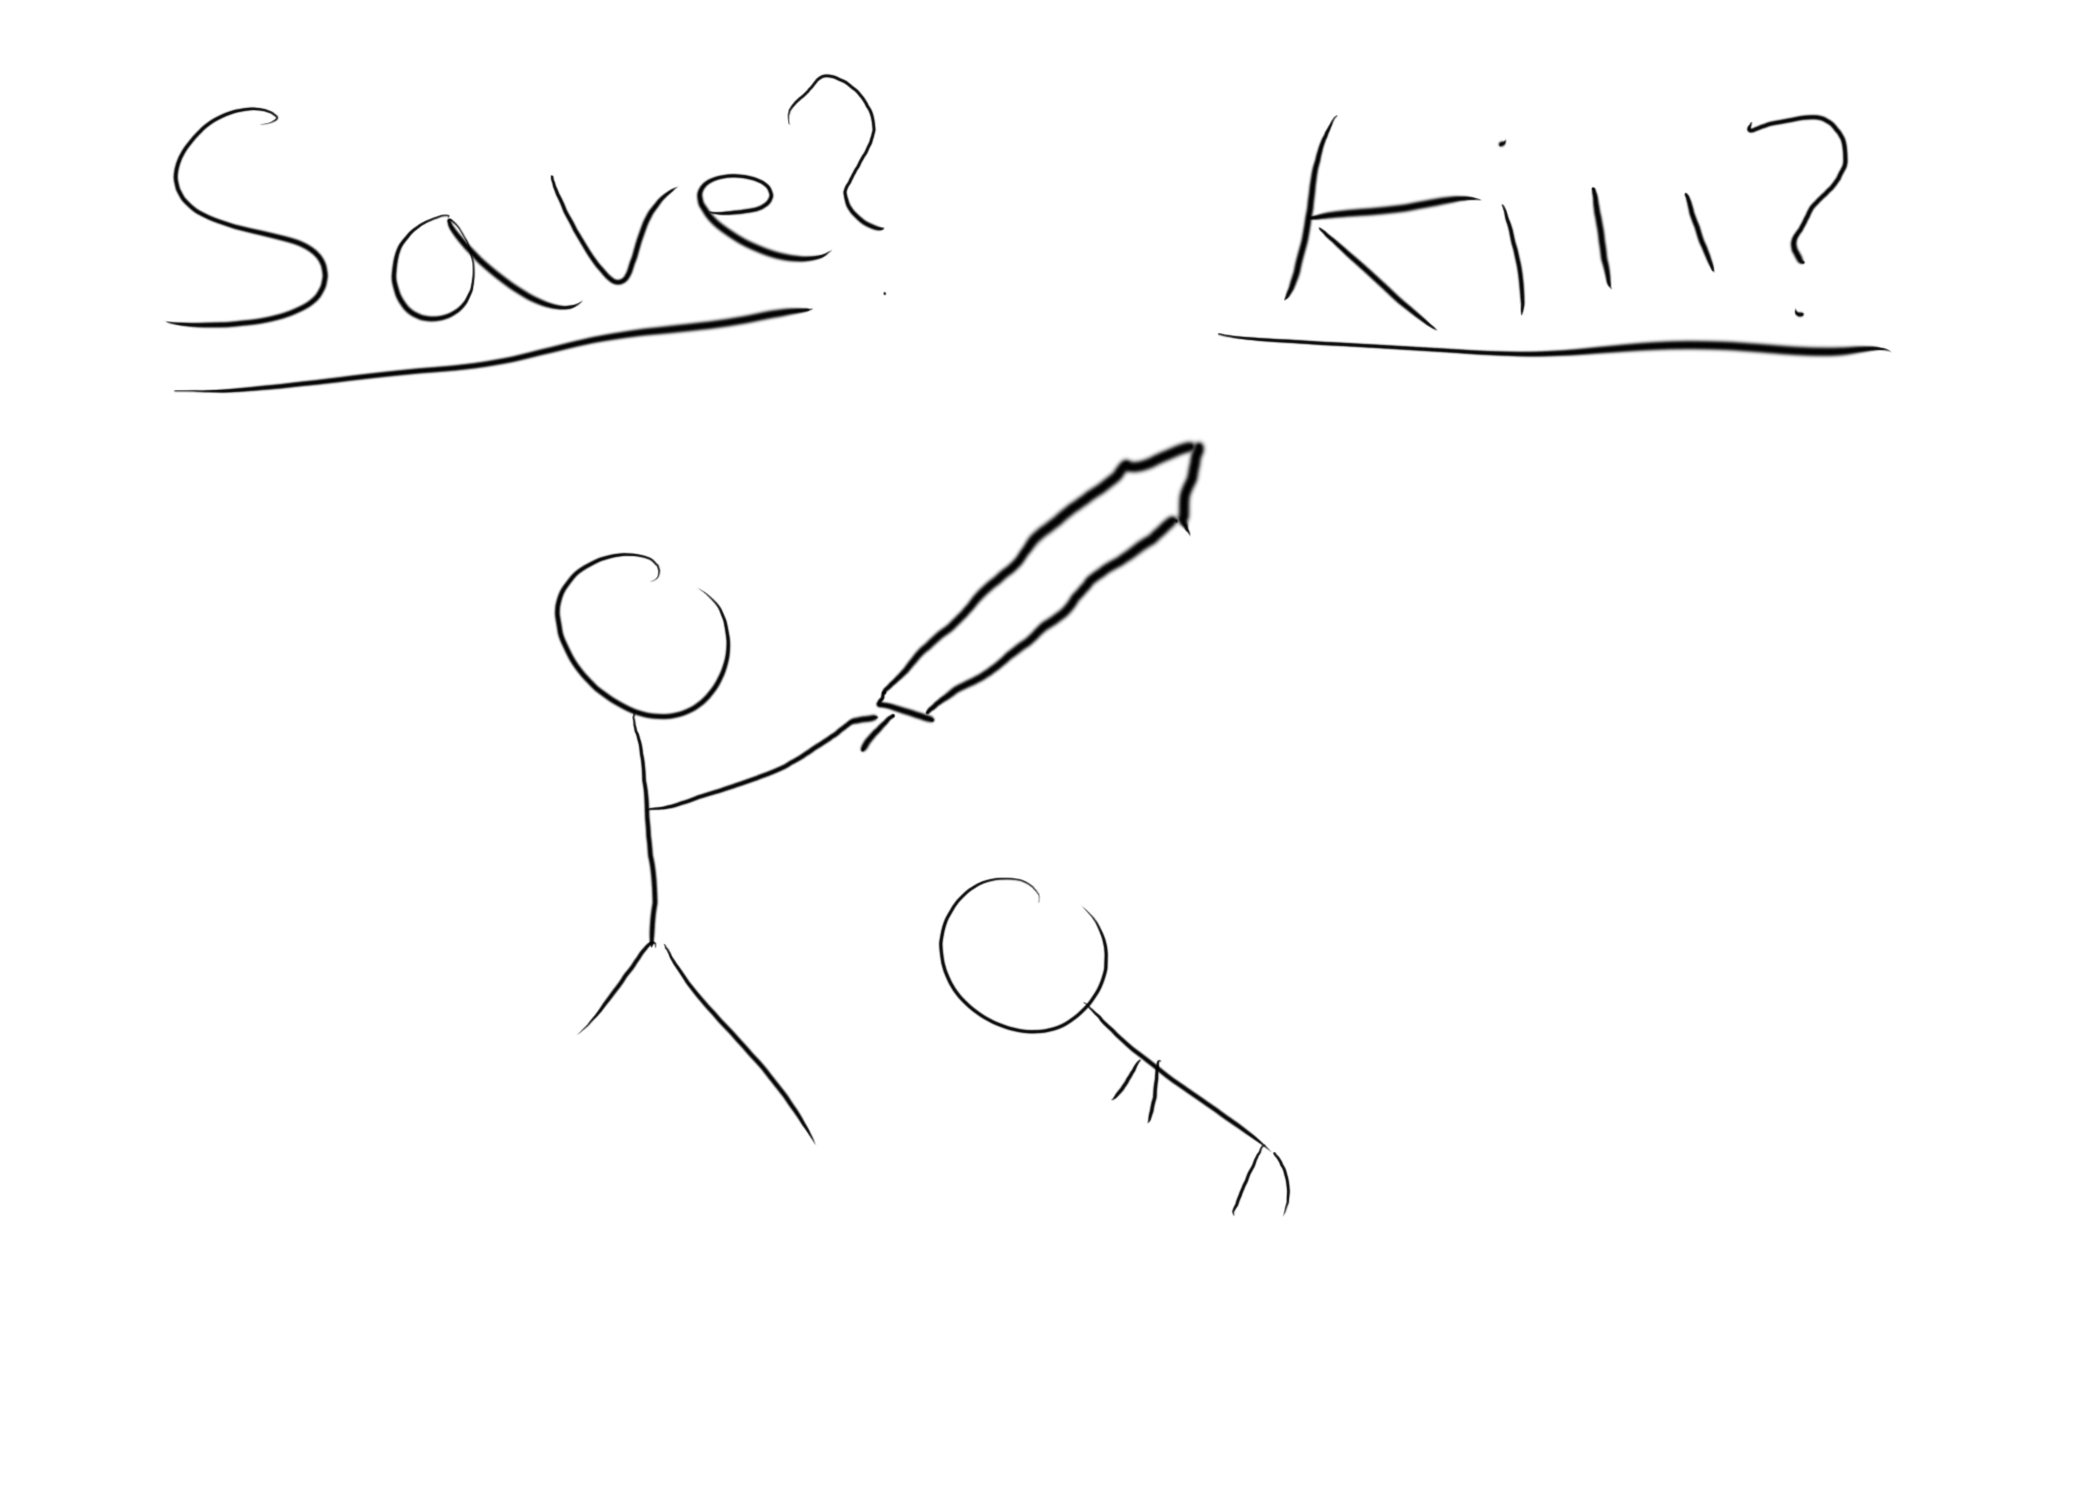 Save? Kill?